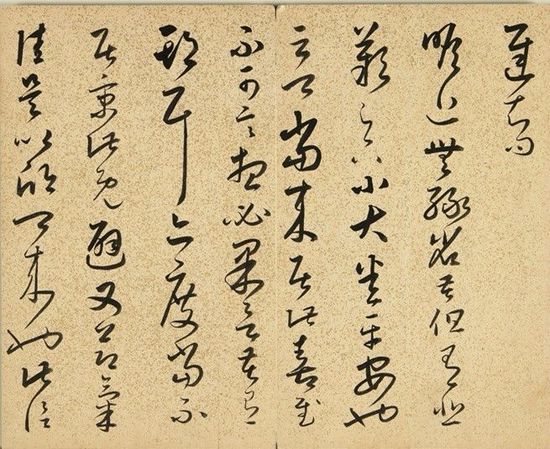 瞻近無緣省苦但有悲
歎足下小大悉平安也
云卿當來居此喜遲
不可言想必果言苦有
期耳亦度當不
居京此既避又節氣
佳是以欣卿來也此信